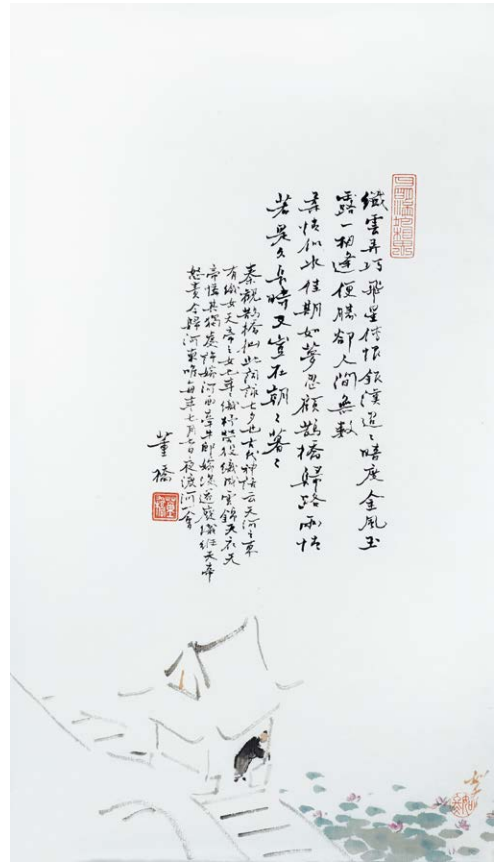 月明滿地相思
纖雲弄巧飛星傳恨銀漢迢〻暗度金風玉
露一相逢便勝卻人間無數
柔情似水佳期如夢忍顧鵲橋歸路兩情
若是久長時又豈在朝〻暮〻
秦觀鵲橋仙此詞詠七夕也古代神話云天河之東
有織女天帝之女也年〻織杼勞役織成雲錦天衣天
帝憐其獨處許嫁河西牽牛郎嫁後遂廢織紝天帝
怒責令歸河東唯每年七月七日夜渡河一會
董橋
董橋